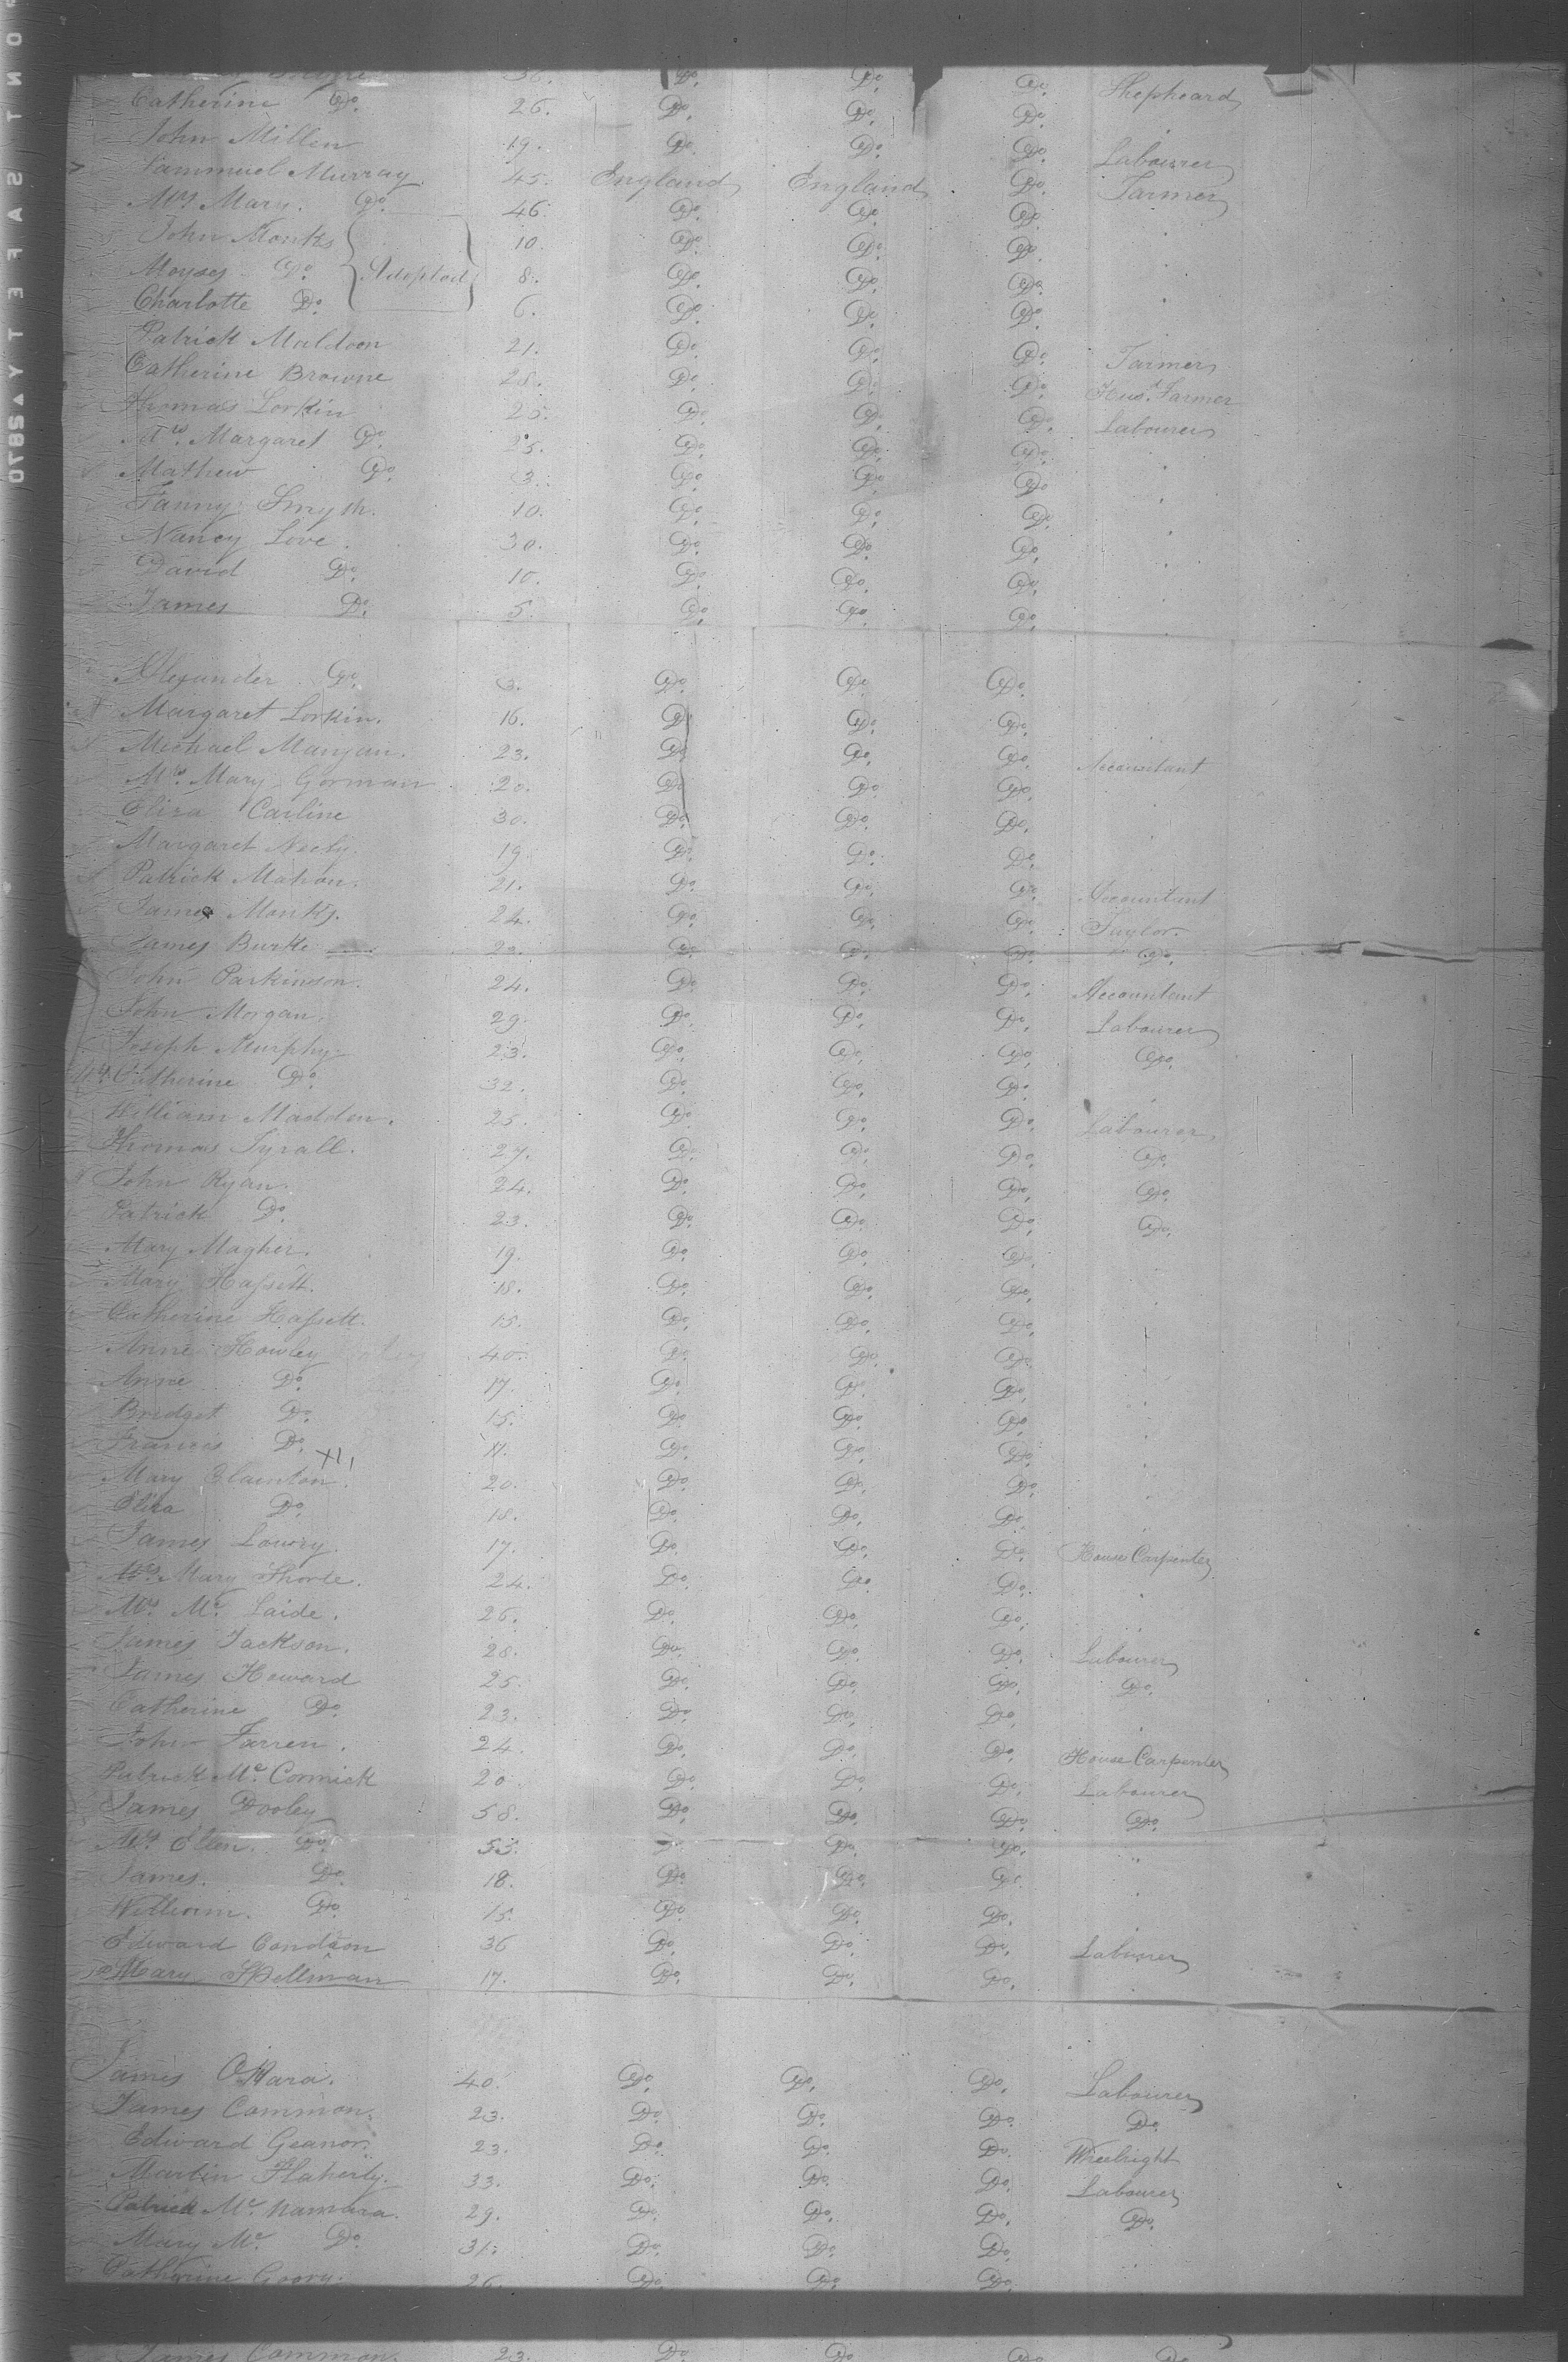 36. Do. Do. Do. Shepheard
Catherine Do. 26. Do. Do. Do.
John Millen 19. Do. Do. Do. Labourer
Sammuel Murray 45. England England Do. Farmer
Mrs Mary. Do. 46. Do. Do. Do.
John Monks 10. Do. Do. Do.
Moyses Do. Adopted 8. Do. Do. Do.
Charlotte Do. 6. Do. Do. Do.
Patrick Maldoon 21. Do. Do. Do. Farmer
Catherine Browne 28. Do. Do. Do. Farmer
Thomas Lorkin 25. Do. Do. Do. Labourer
Mrs. Margaret Do. 25. Do. Do. Do.
Mathew Do. 3. Do. Do. Do.
Fanny Smyth. 10. Do. Do. Do.
Nancy Love. 30. Do. Do. Do.
David Do. 10. Do. Do. Do.
James Do. 5. Do. Do. Do.
Alexander Do. 3. Do. Do. Do.
Margaret Lorkin. 16. Do. Do. Do.
Michael Mangan. 23. Do. Do. Do. Accountant
Mrs. Mary Gorman 20. Do. Do. Do.
Eliza Carline 30. Do. Do. Do.
Margaret Neely. 19. Do. Do. Do.
Patrick Mahon. 21. Do. Do. Do. Accountant
James Monks. 24. Do. Do. Do. Taylor.
James Burke 23. Do. Do. Do. Do.
John Parkinson. 24. Do. Do. Do. Accountant
John Morgan. 29. Do. Do. Do. Labourer
Joseph Murphy. 23. Do. Do. Do. Do.
Mrs. Catherine Do. 32. Do. Do. Do.
William Madden. 25. Do. Do. Do. Labourer
Thomas Tyrall. 27. Do. Do. Do. Do.
John Ryan. 24. Do. Do. Do. Do.
Patrick Do. 23. Do. Do. Do. Do.
Mary Magher. 19. Do. Do. Do.
Mary Hassett. 18. Do. Do. Do.
Catherine Hassett. 15. Do. Do. Do.
Anne Howley 40. Do. Do. Do.
Anne Do. 17. Do. Do. Do.
Bridget Do. 15. Do. Do. Do.
Francis Do. 11. Do. Do. Do.
Mary Clainton. 20. Do. Do. Do.
Eliza Do. 18. Do. Do. Do.
James Lowry. 17. Do. Do. Do. House Carpenter
Mrs. Mary Thorle. 24. Do. Do. Do.
Mrs Mc. Laide. 26. Do. Do. Do.
James Jackson. 28. Do. Do. Do. Labourer
James Howard 25. Do. Do. Do. Do.
Catherine Do. 23. Do. Do. Do.
John Farren. 24. Do. Do. Do. House Carpenter
Patrick Mc. Cormick 20. Do. Do. Do. Labourer
James Dooley 58. Do. Do. Do. Do.
Mrs Ellen. Do. 53. Do. Do.
James. Do. 18. Do. Do. Do.
William. Do. 15. Do. Do. Do.
Edward Condoon 36 Do. Do. Do. Labourer
Mary Skellman 17. Do. Do. Do.
James OHara. 40. Do. Do. Do. Labourer
James Common. 23. Do. Do. Do. Do.
Edward Geanor. 23. Do. Do. Do. Wheelright
Martin Flaherty. 33. Do. Do. Do. Labourer
Patrick Mc. Namara. 29. Do. Do. Do. Do.
Mary Mc. Do. 31. Do. Do. Do.
Catherine Goory. 26. Do. Do. Do.
James Common. 23. Do. Do. Do. Do.